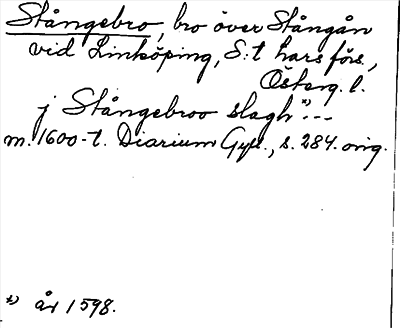 Stångebro, bro över Stångån
vid Linköping, S:t Lars förs.,
Österg. l.
j Stångebroo slagh *) ---
m. 1600-t. Diarium Gyll., s. 284. orig.
*) år 1598.